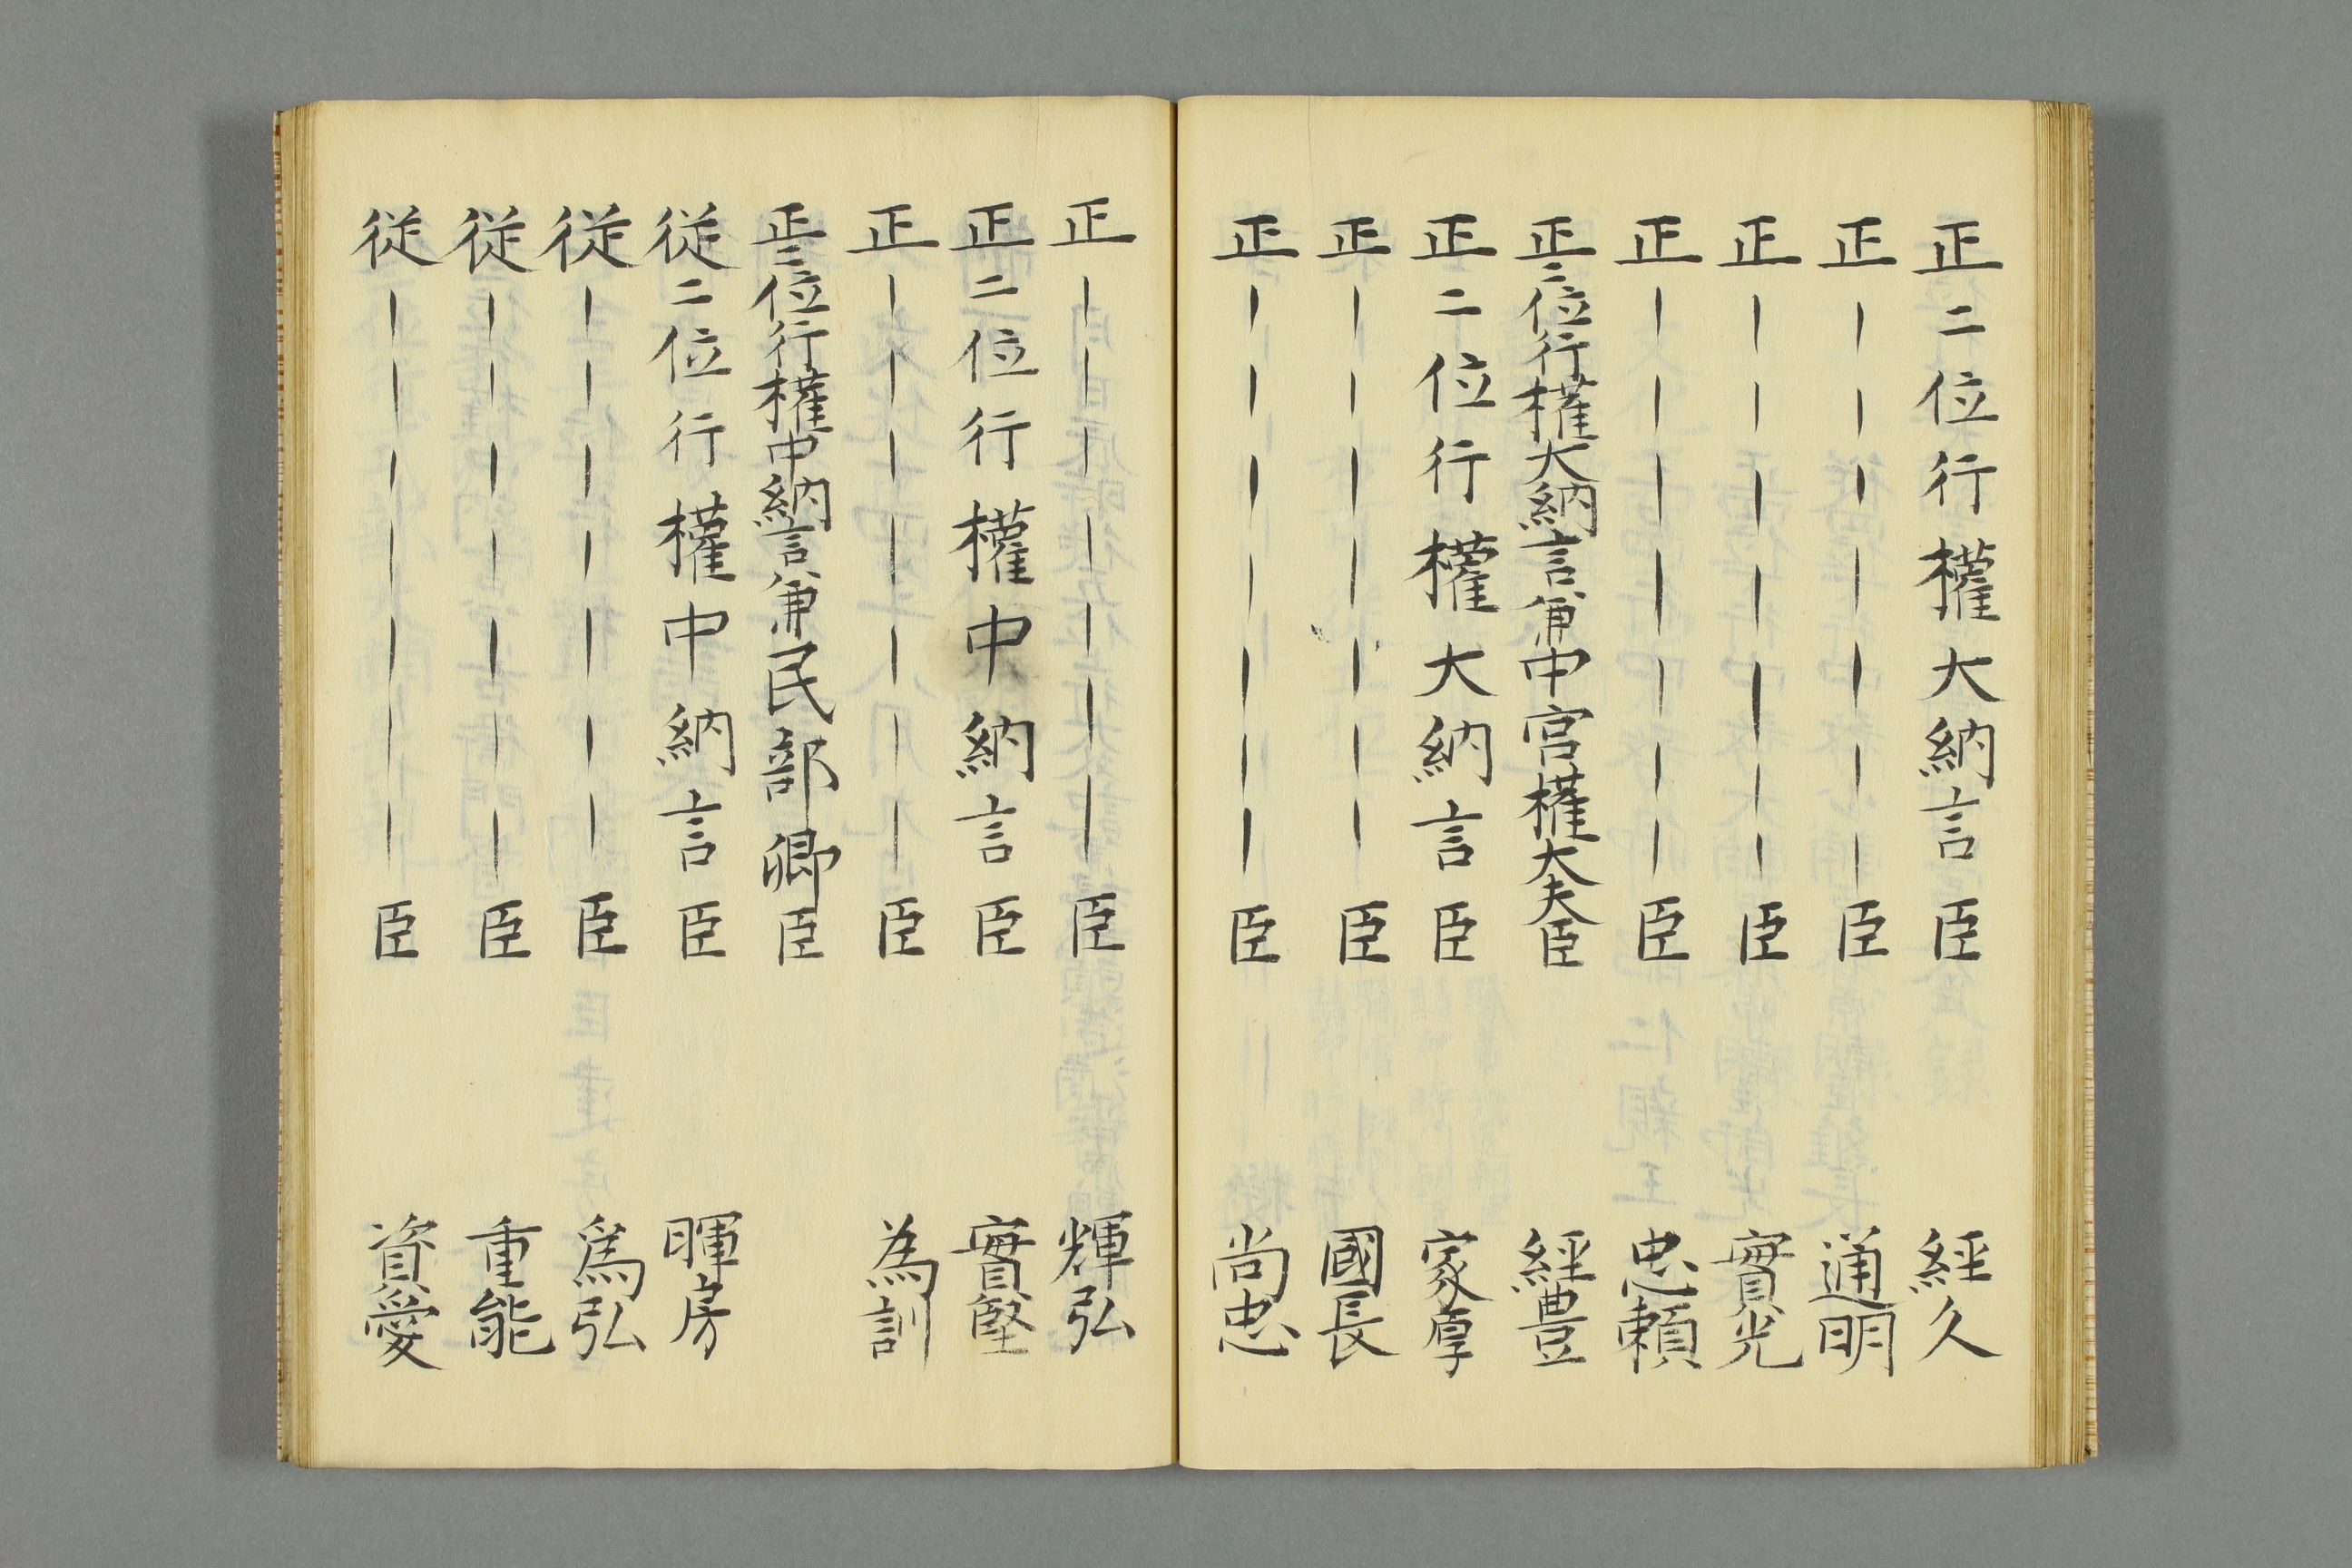 正二位行權大納言臣 經久
正｜｜｜｜｜｜｜臣 通明
正｜｜｜｜｜｜｜臣 實光
正｜｜｜｜｜｜｜臣 忠頼
正二位行權大納言兼中宮權大夫臣 經豊
正二位行權大納言臣 家厚
正｜｜｜｜｜｜｜臣 國長
正｜｜｜｜｜｜｜臣 尚忠
正｜｜｜｜｜｜｜臣 輝弘
正二位行權中納言臣 實堅
正｜｜｜｜｜｜｜臣 為訓
正二位行權中納言兼民部卿臣
從二位行權中納言臣 暉房
從｜｜｜｜｜｜｜臣 爲弘
從｜｜｜｜｜｜｜臣 重能
從｜｜｜｜｜｜｜臣 資愛